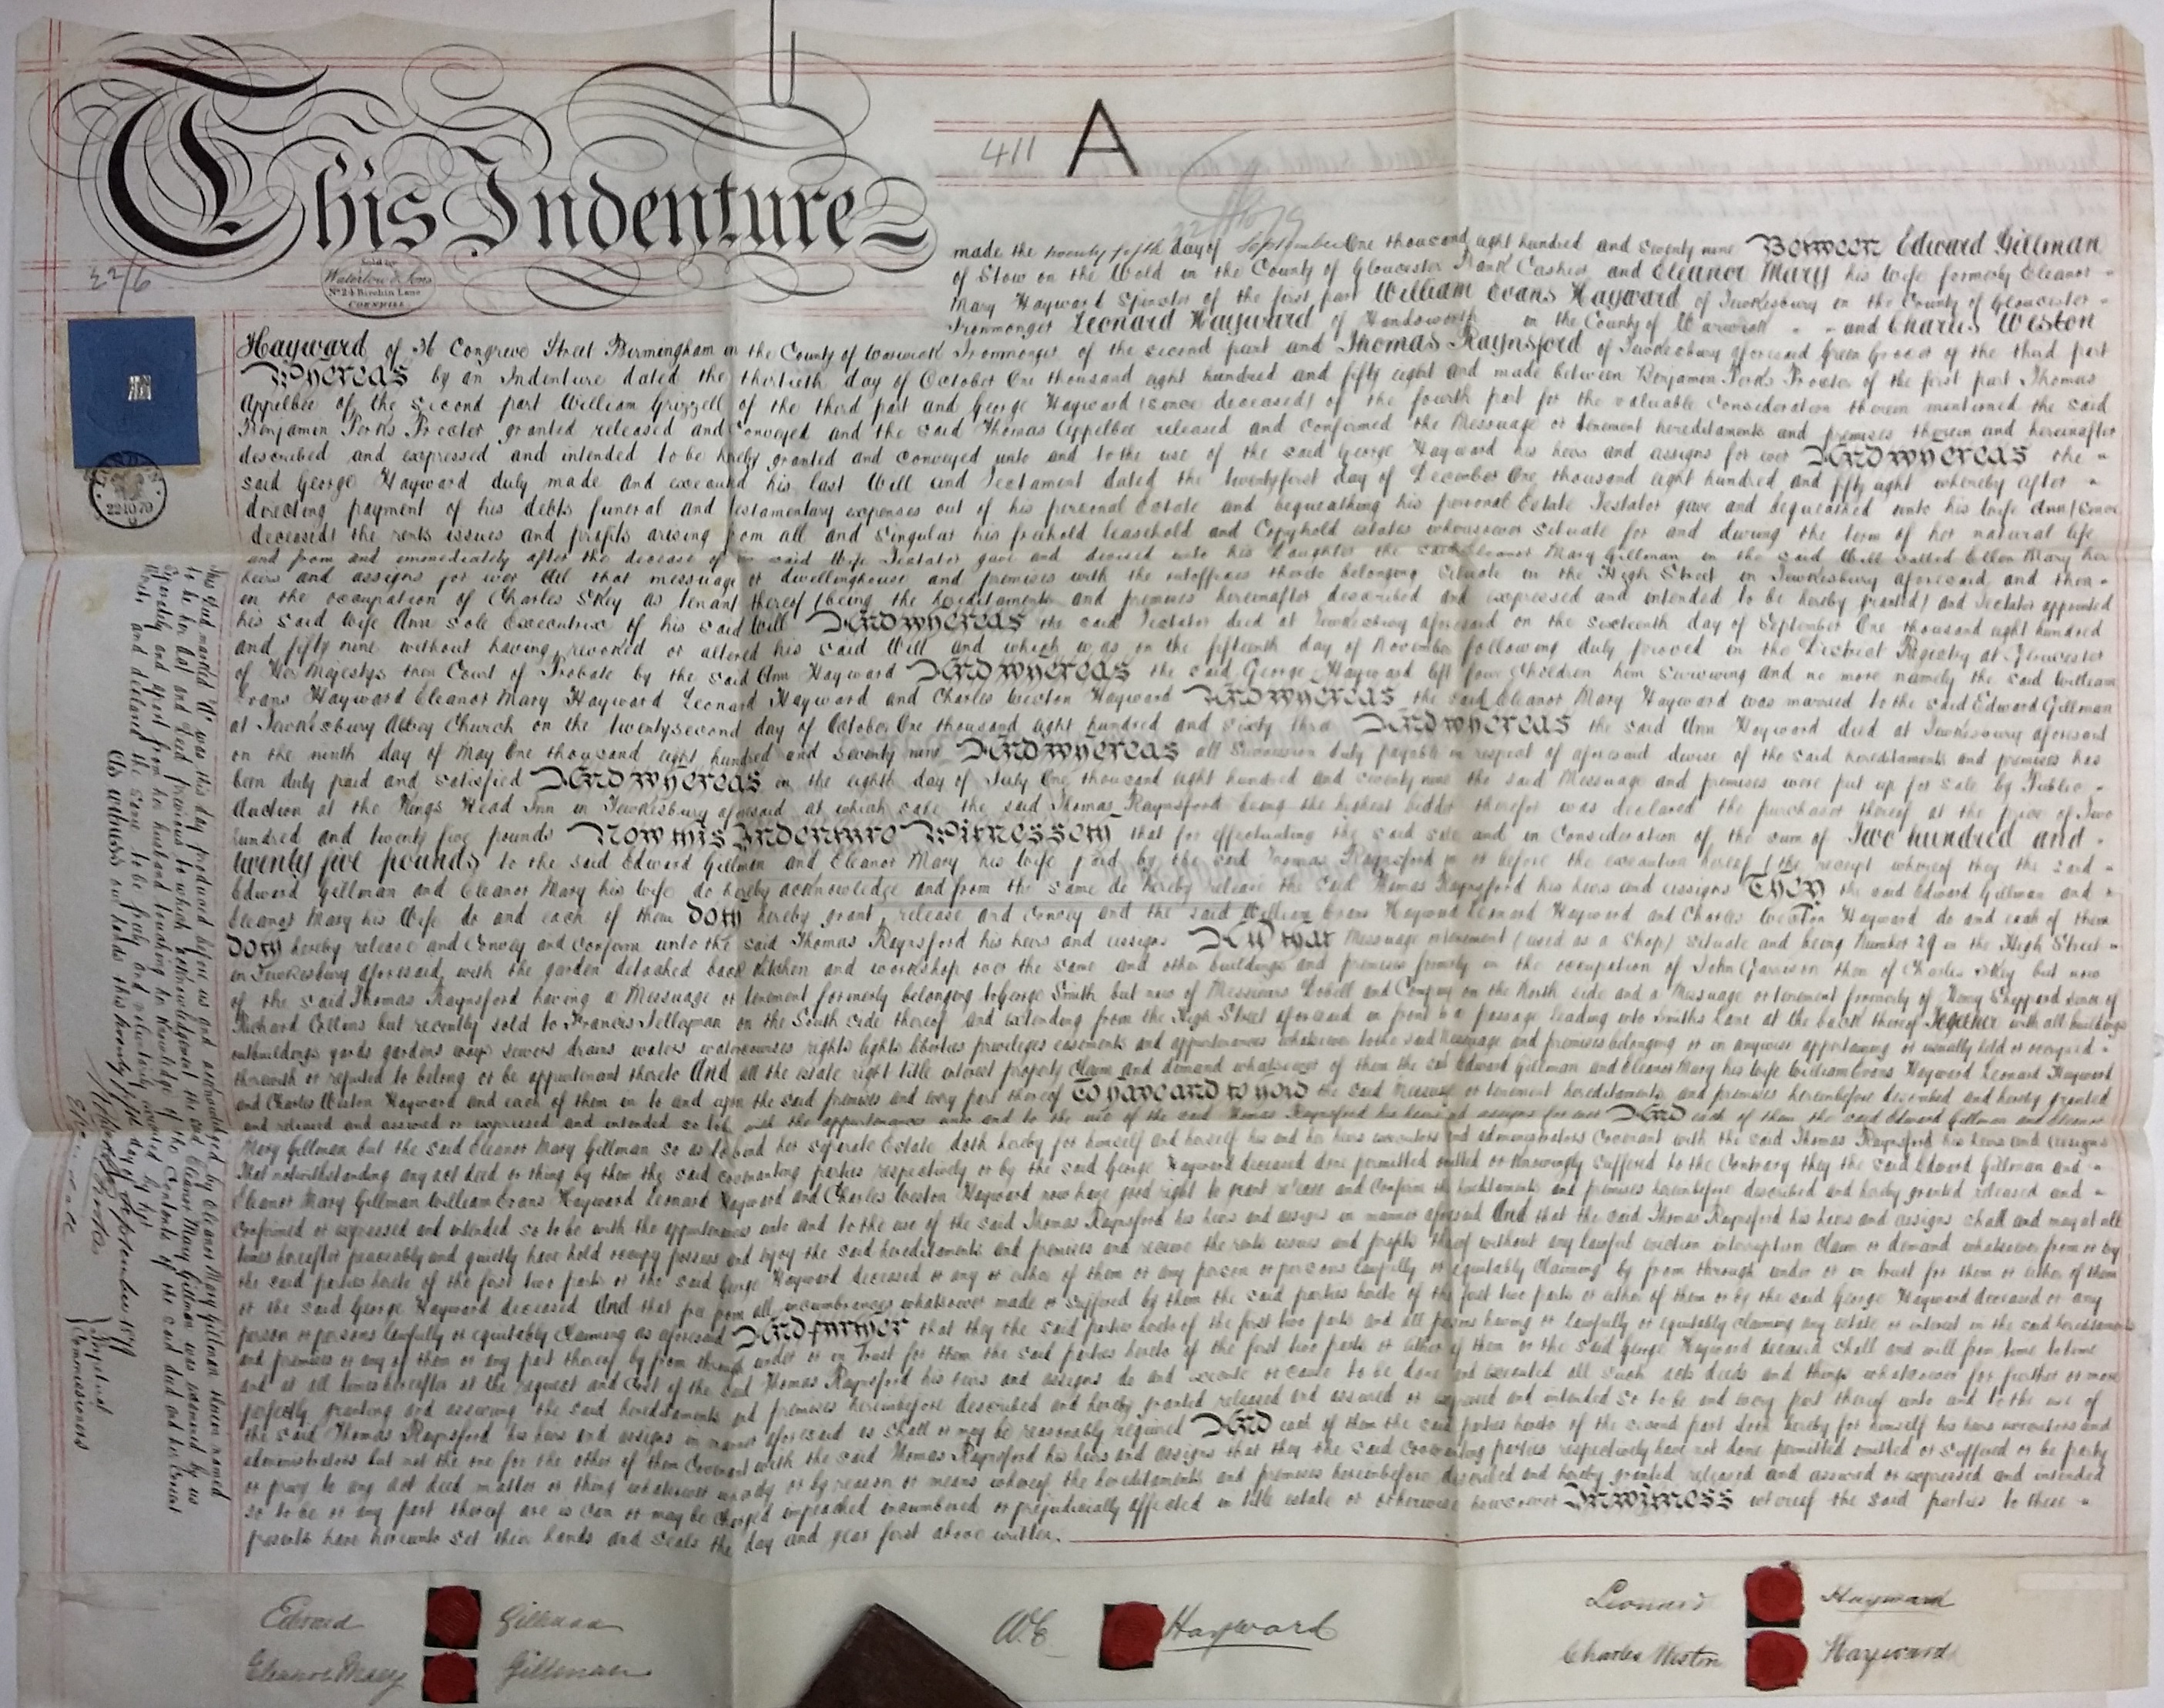 This Indenture
411 A
22/6
Sold by
Waterlow & Sons
No 24 Birchin Lane
CORNHILL
made the twenty fifth day of September One thousand eight hundred and seventy nine Between Edward Gillman
of Stow on the Wold in the County of Gloucester Bank Cashier and Eleanor Mary his Wife formerly Eleanor
Mary Hayward Spinster of the first part William Evans Hayward of Tewkesbury in the County of Gloucester
Ironmonger Leonard Hayward of Handsworth in the County of Warwick and Charles Weston
Hayward of 36 Congreve Street Birmingham in the County of Warwick Ironmonger of the second part and Thomas Raynsford of Tewkesbury aforesaid Green Grocer of the third part
Whereas by an Indenture dated the thirtieth day of October One thousand eight hundred and fifty eight and made between Benjamin Perks Procter of the first part Thomas
Appelbee of the second part William Grizzell of the third part and George Hayward (since deceased) of the fourth part for the valuable Consideration therein mentioned the said
Benjamin Perks Procter granted released and Conveyed and the said Thomas Appelbee released and Confirmed the Messuage or tenement hereditaments and premises therein and hereinafter
described and expressed and intended to be hereby granted and conveyed unto and to the use of the said George Hayward his heirs and assigns for ever And whereas the
said George Hayward duly made and executed his last Will and Testament dated the twentyfirst day of December One thousand eight hundred and fifty eight whereby after
directing payment of his debts funeral and testamentary expenses out of his personal Estate and bequeathing his personal Estate Testator gave and bequeathed unto his Wife Ann (since
deceased) the rents issues and profits arising from all and Singular his freehold leasehold and Copyhold estates whomsoever situate for and during the term of her natural life
and from and immediately after the decease of his said Wife Testator gave and devised unto his daughter the said Eleanor Mary Gillman in the said Will called Ellen Mary her
heirs and assigns for ever All that messuage or dwellinghouse and premises with the outoffices thereto belonging Situate in the High Street in Tewkesbury aforesaid and then
in the occupation of Charles Skey as tenant thereof (being the hereditaments and premises hereinafter described and expressed and intended to be hereby granted) and Testator appointed
his said Wife Ann Sole Executrix of his said Will And whereas the said Testator died at Tewkesbury aforesaid on the sixteenth day of September One thousand eight hundred
and fifty nine without having revoked or altered his said Will and which was on the fifteenth day of November following duly proved in the District Registry at Gloucester
of Her Majestys then Court of Probate by the said Ann Hayward And whereas the said George Hayward left four Children him Surviving and no more namely the said William
Evans Hayward Eleanor Mary Hayward Leonard Hayward and Charles Weston Hayward And whereas the said Eleanor Mary Hayward was married to the said Edward Gillman
at Tewkesbury Abbey Church on the twentysecond day of October One thousand eight hundred and sixty three And whereas the said Ann Hayward died at Tewkesbury aforesaid
on the ninth day of May One thousand eight hundred and seventy nine And whereas all Succession duty payable in respect of aforesaid devise of the said hereditaments and premises has
been duly paid and satisfied And whereas on the eighth day of July One thousand eight hundred and seventy nine the said Messuage and premises were put up for Sale by Public
Auction at the Kings Head Inn in Tewkesbury aforesaid at which sale the said Thomas Raynsford being the highest bidder therefor was declared the purchaser thereof at the price of Two
hundred and twenty five pounds Now this Indenture Witnesseth that for effectuating the said sale and in Consideration of the sum of Two hundred and
twenty five pounds to the said Edward Gillman and Eleanor Mary his Wife paid by the said Thomas Raynsford on or before the execution hereof (the receipt whereof they the said
Edward Gillman and Eleanor Mary his Wife do hereby acknowledge and from the same do hereby release the said Thomas Raynsford his heirs and assigns They the said Edward Gillman and
Eleanor Mary his Wife do and each of them Doth hereby grant release and Convey and the said William Evans Hayward Leonard Hayward and Charles Weston Hayward do and each of them
Doth hereby release and Convey and Confirm unto the said Thomas Raynsford his heirs and assigns All that Messuage or tenement (used as a Shop) Situate and being Number 29 in the High Street
in Tewkesbury aforesaid with the garden detached back Kitchen and workshop over the same and other buildings and premises formerly in the occupation of John Garrison then of Charles Skey but now
of the said Thomas Raynsford having a Messuage or tenement formerly belonging to George Smith but now of Messieurs and Company on the North side and a Messuage or tenement formerly of Henry Sheppard since of
Richard Collins but recently sold to Francis Jelleyman on the South Side thereof and extending from the High Street aforesaid in front to a passage leading into Smiths Lane at the back thereof Together with all buildings
outbuildings yards gardens ways sewers drains waters watercourses rights lights liberties privileges easements and appurtenances whatever to the said Messuage and premises belonging or in anywise appertaining or usually held or occupied
therewith or reputed to belong or be appurtenant thereto And all the estate right title interest property Claim and demand whatsoever of them the said Edward Gillman and Eleanor Mary his Wife William Evans Hayward Leonard Hayward
and Charles Weston Hayward and each of them in to and upon the said premises and every part thereof To have and to hold the said Messuage or tenement hereditaments and premises hereinbefore described and hereby granted
and released and assured or expressed and intended so to be with the appurtenances unto and to the use of the said Thomas Raynsford his heirs and assigns for ever And each of them the said Edward Gillman and Eleanor
Mary Gillman but the said Eleanor Mary Gillman so as to bind her separate Estate doth hereby for himself and herself his and her heirs executors and administrators Covenant with the said Thomas Raynsford his heirs and assigns
That notwithstanding any act deed or thing by them the said covenanting parties respectively or by the said George Hayward deceased done permitted omitted or Knowingly Suffered to the Contrary they the said Edward Gillman and
Eleanor Mary Gillman William Evans Hayward Leonard Hayward and Charles Weston Hayward now have good right to grant release and Confirm the hereditaments and premises hereinbefore described and hereby granted released and
Confirmed or expressed and intended so to be with the appurtenances unto and to the use of the said Thomas Raynsford his heirs and assigns in manner aforesaid And that the said Thomas Raynsford his heirs and assigns shall and may at all
times hereafter peaceably and quietly have hold occupy possess and enjoy the said hereditaments and premises and receive the rents issues and profits thereof without any lawful eviction interruption Claim or demand whatsoever from or by
the said parties hereto of the first two parts or the said George Hayward deceased or any or either of them or any person or persons lawfully or equitably Claiming by from through under or in trust for them or either of them
or the said George Hayward deceased And that free from all incumbrances whatsoever made or Suffered by them the said parties hereto of the first two parts or either of them or by the said George Hayward deceased or any
person or persons lawfully or equitably Claiming as aforesaid And further that they the said parties hereto of the first two parts and all persons having or lawfully or equitably claiming any estate or interest in the said hereditaments
and premises or any of them or any part thereof by from through under or in Trust for them the said parties hereto of the first two parts or either of them or the said George Hayward deceased Shall and will from time to time
and at all times hereafter at the request and Cost of the said Thomas Raynsford his heirs and assigns do and execute or cause to be done and executed all such acts deeds and things whatsoever for further or more
perfectly granting and assuring the said hereditaments and premises hereinbefore described and hereby granted released and assured or expressed and intended so to be and every part thereof unto and to the use of
the said Thomas Raynsford his heirs and assigns in manner aforesaid as shall or may be reasonably required And each of them the said parties hereto of the second part doth hereby for himself his heirs executors and
administrators but not the one for the other of them Covenant with the said Thomas Raynsford his heirs and assigns that they the said Covenanting parties respectively have not done permitted omitted or Suffered or be party
or privy to any act deed matter or thing whatsoever whereby or by reason or means whereof the hereditaments and premises hereinbefore described and hereby granted released and assured or expressed and intended
so to be or any part thereof are is Can or may be Charged impeached incumbered or prejudicially affected in title estate or otherwise howsoever In witness whereof the said parties to these
presents have hereunto set their hands and seals the day and year first above written.
This deed marked A was this day produced before us and acknowledged by Eleanor Mary Gillman therein named
to be her act and deed previous to which acknowledgement the said Eleanor Mary Gillman was examined by us
separately and apart from her husband touching her Knowledge of the Contents of the said deed and her Consent
thereto and declared the same to be freely and voluntarily executed by her
As witness our hands this twenty fifth day of September 1879
Perpetual
Commissioners
221079
Edward Gillman
Eleanor Mary Gillman
W.E. Hayward
Leonard Hayward
Charles Weston Hayward